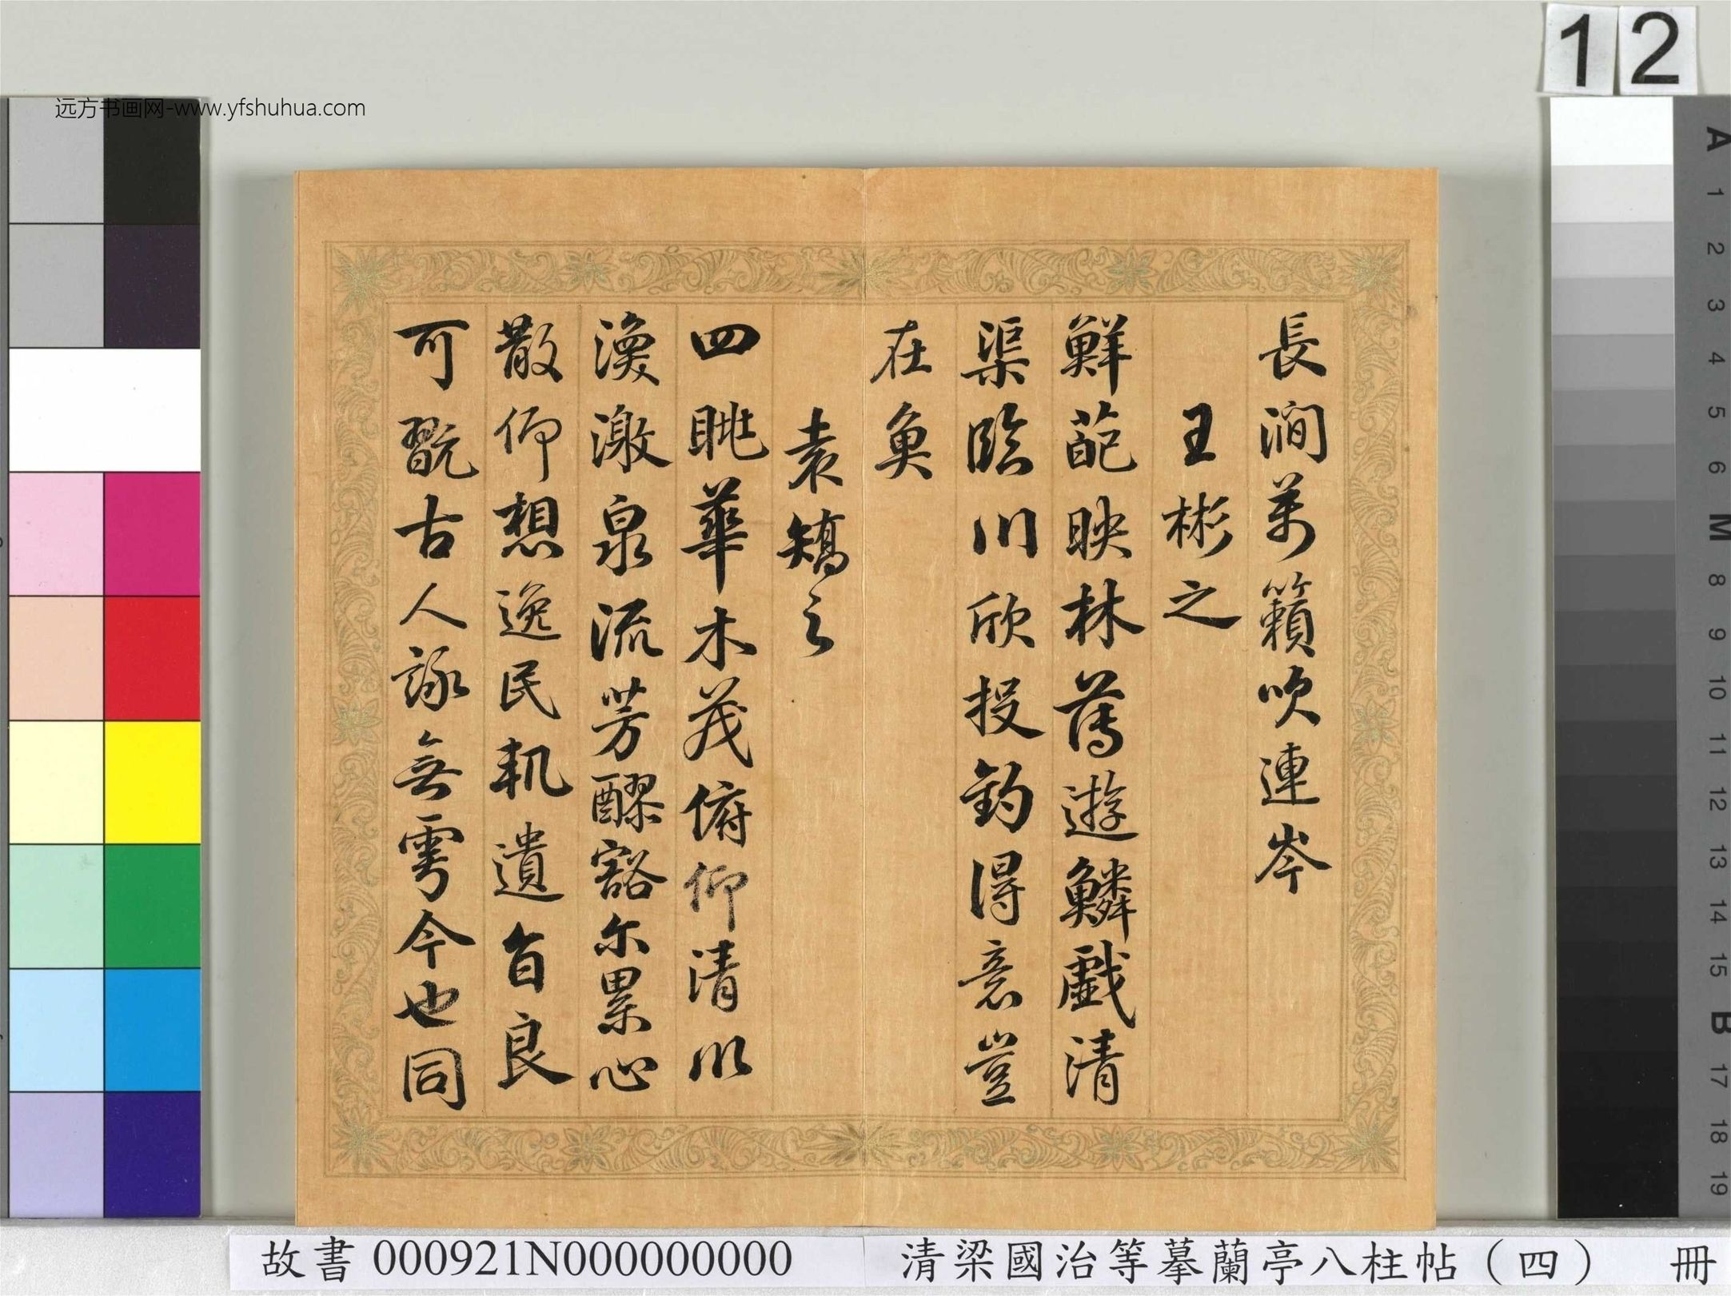 12
远方书画网-www.yfshuhua.com
長澗萬籟吹連岑
王彬之
鮮葩映林薄遊鱗戲清
渠臨川欣投釣得意豈
在魚
袁矯之
四眺華木茂俯仰清川
渙激泉流芳醪豁尔累心
散仰想逸民軌遺音良
可翫古人詠無雩今也同
A
1
2
3
4
5
6
M
8
9
10
11
12
13
14
15
B
17
18
19
故書000921N000000000
清梁國治等摹蘭亭八柱帖（四） 冊